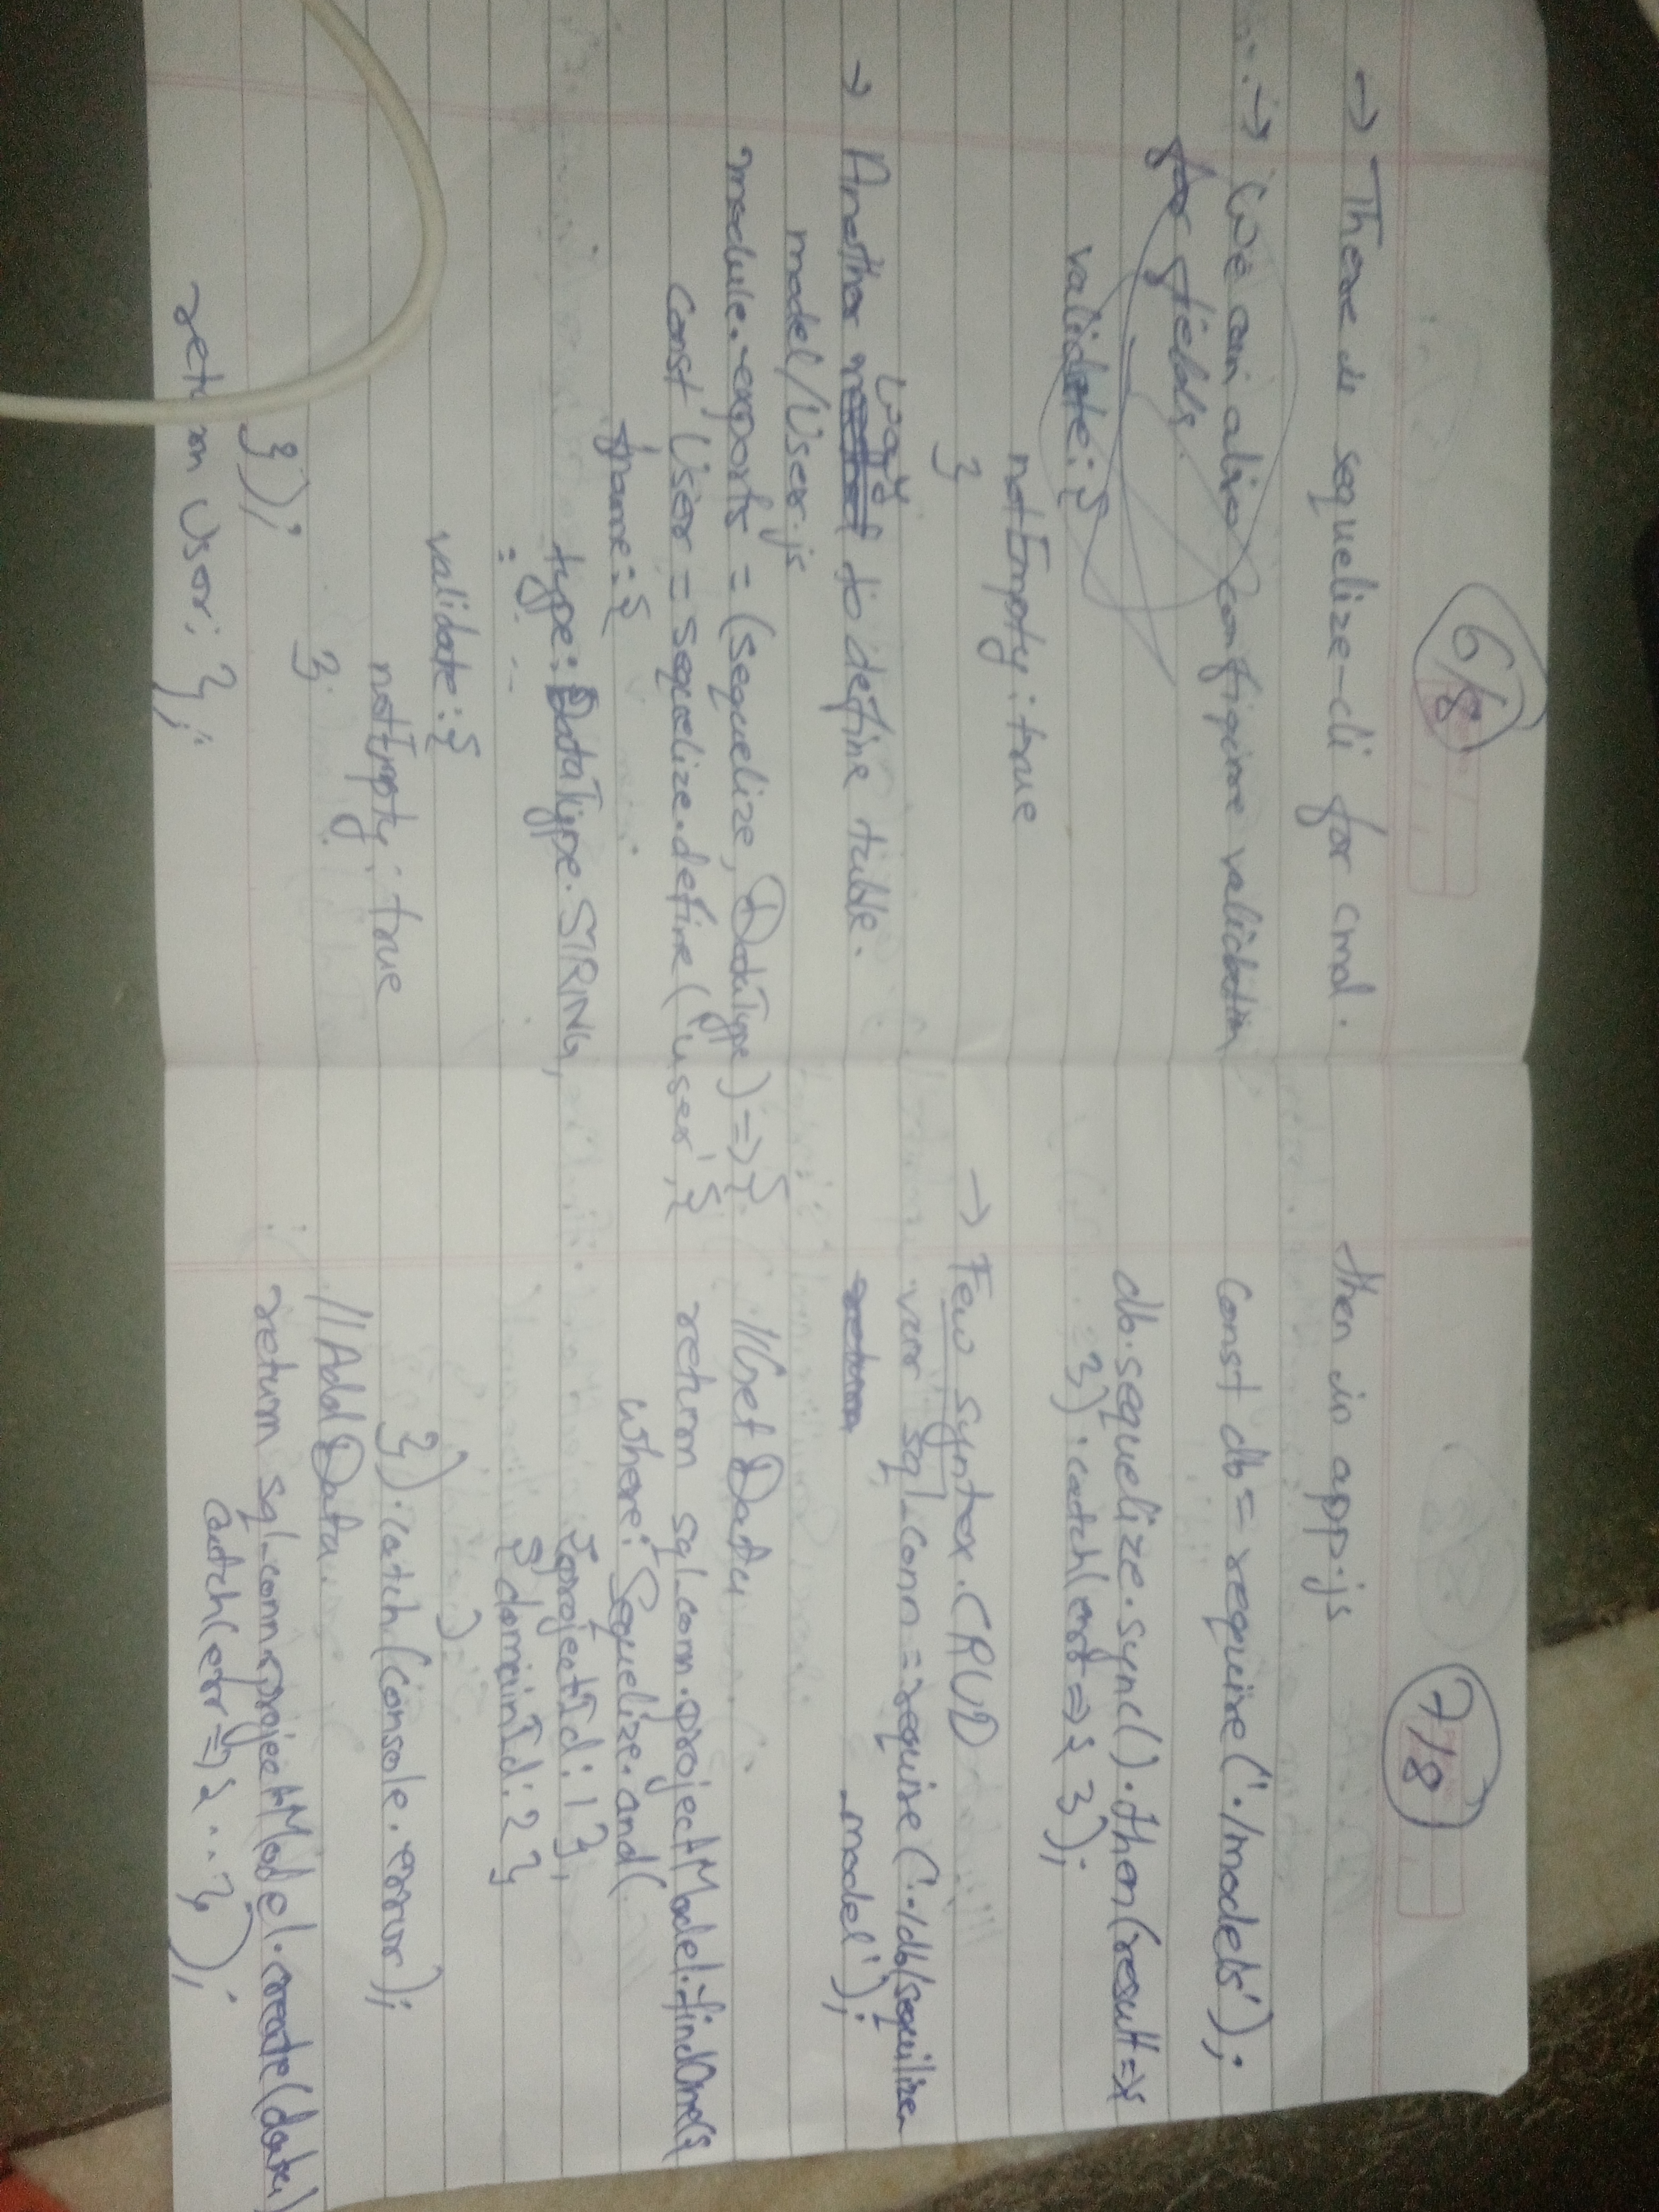 6/8
→ There is sequelize-cli for cmd.
→ We can also configure validation
for fields.
validate: {
notEmpty: true
}
way
→ Another to define table.
model/User.js
module.exports = (sequelize, DataType) => {
const User = sequelize.define('user', {
fname: {
type: DataType.STRING,
: - - - -
validate: {
notEmpty: true
}
});
return User; };
7/8
then in app.js
const db = require('./models');
db.sequelize.sync().then(result => {
}).catch(err => { });
→ Few syntex. CRUD
var sql_conn = require('../db/sequilize-
_model');
return
//Get Data
return sql_conn.projectModel.findOne({
where: Sequelize.and(
{projectId: 1 },
{ domainId: 2 }
)
}).catch(console.error);
//Add Data.
return sql_conn.projectModel.create(data)
catch(err => { .. });